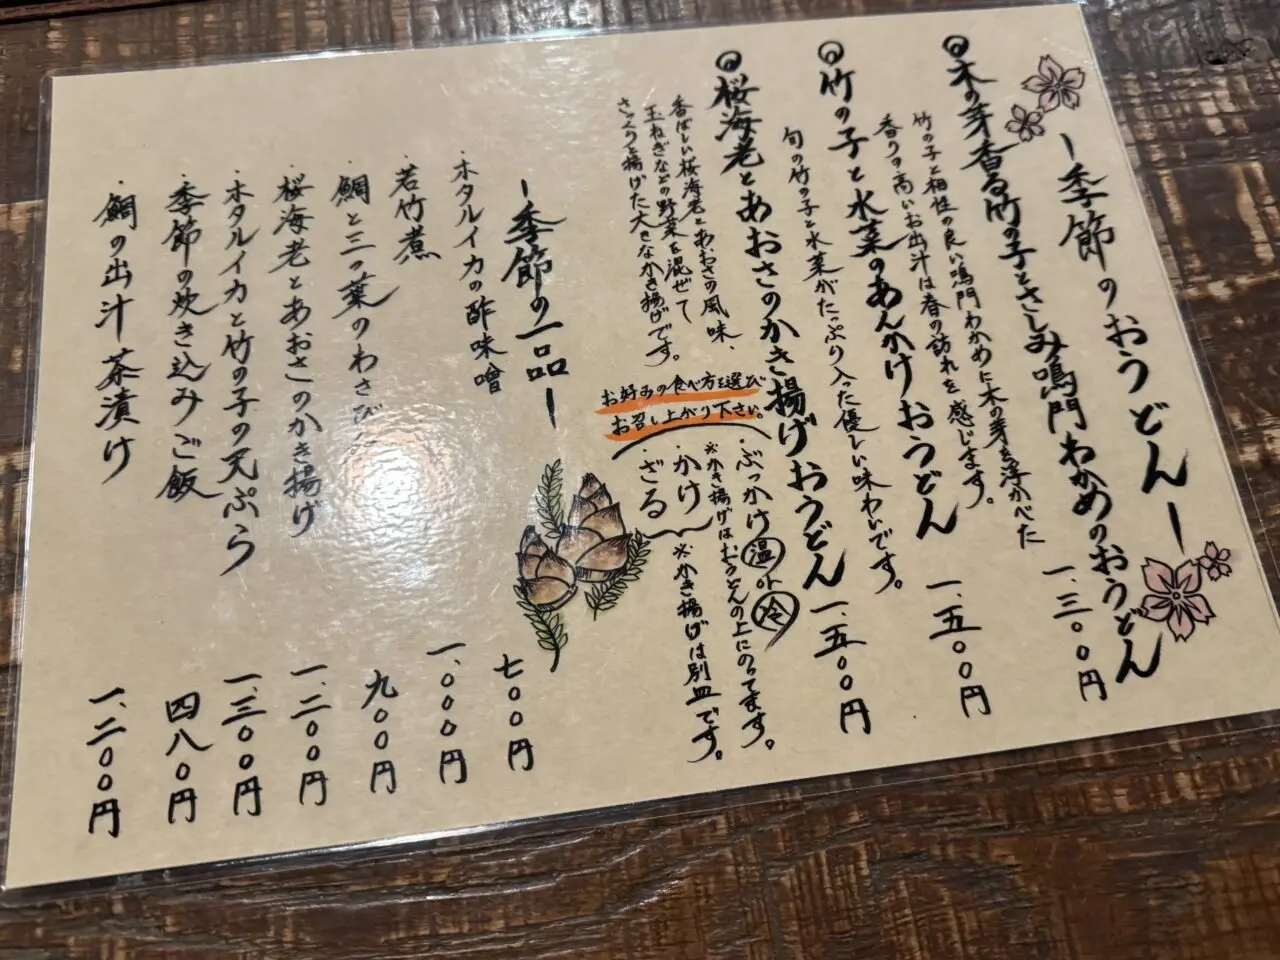 ー季節のおうどんー
木の芽香る竹の子とさしみ鳴門わかめのおうどん
竹の子と相性の良い鳴門わかめに木の芽を浮かべた
香りの高いお出汁は春の訪れを感じます。
一、三〇〇円
竹の子と水菜のあんかけおうどん
旬の竹の子と水菜がたっぷり入った優しい味わいです。
一、五〇〇円
桜海老とあおさのかき揚げおうどん
香ばしい桜海老とあおさの風味、
玉ねぎなどの野菜を混ぜて
さっくりと揚げた大きなかき揚げです。
一、五〇〇円
お好みの食べ方を選び
お召し上がり下さい。
・ぶっかけ 温 or 冷
※かき揚げはおうどんの上にのってます。
・かけ
・ざる
※かき揚げは別皿です。
ー季節の一品ー
・ホタルイカの酢味噌 七〇〇円
・若竹煮 一、〇〇〇円
・鯛と三つ葉のわさび 九〇〇円
・桜海老とあおさのかき揚げ 一、二〇〇円
・ホタルイカと竹の子の天ぷら 一、三〇〇円
・季節の炊き込みご飯 四八〇円
・鯛の出汁茶漬け 一、二〇〇円